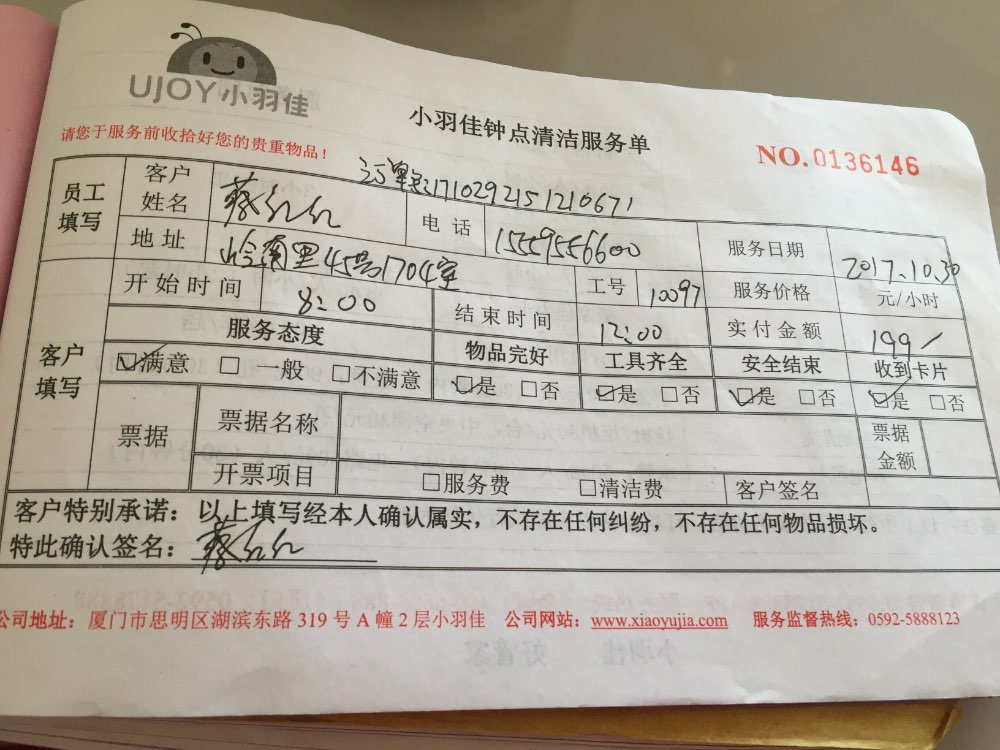 UJOY小羽佳
小羽佳钟点清洁服务单
请您于服务前收拾好您的贵重物品！
NO.0136146
1710292151210671
员工填写 客户姓名 蔡红红 电话 15559556600 服务日期 2017.10.30
地址 岭兜里45号1704室 工号 10097 服务价格 元/小时
客户填写 开始时间 8:00 结束时间 12:00 实付金额 199/
服务态度 物品完好 工具齐全 安全结束 收到卡片
☑满意 □一般 □不满意 ☑是 □否 ☑是 □否 ☑是 □否 ☑是 □否
票据 票据名称 票据金额
开票项目 □服务费 □清洁费 客户签名
客户特别承诺：以上填写经本人确认属实，不存在任何纠纷，不存在任何物品损坏。
特此确认签名：蔡红红
公司地址：厦门市思明区湖滨东路 319 号 A 幢 2 层小羽佳 公司网站：www.xiaoyujia.com 服务监督热线：0592-5888123